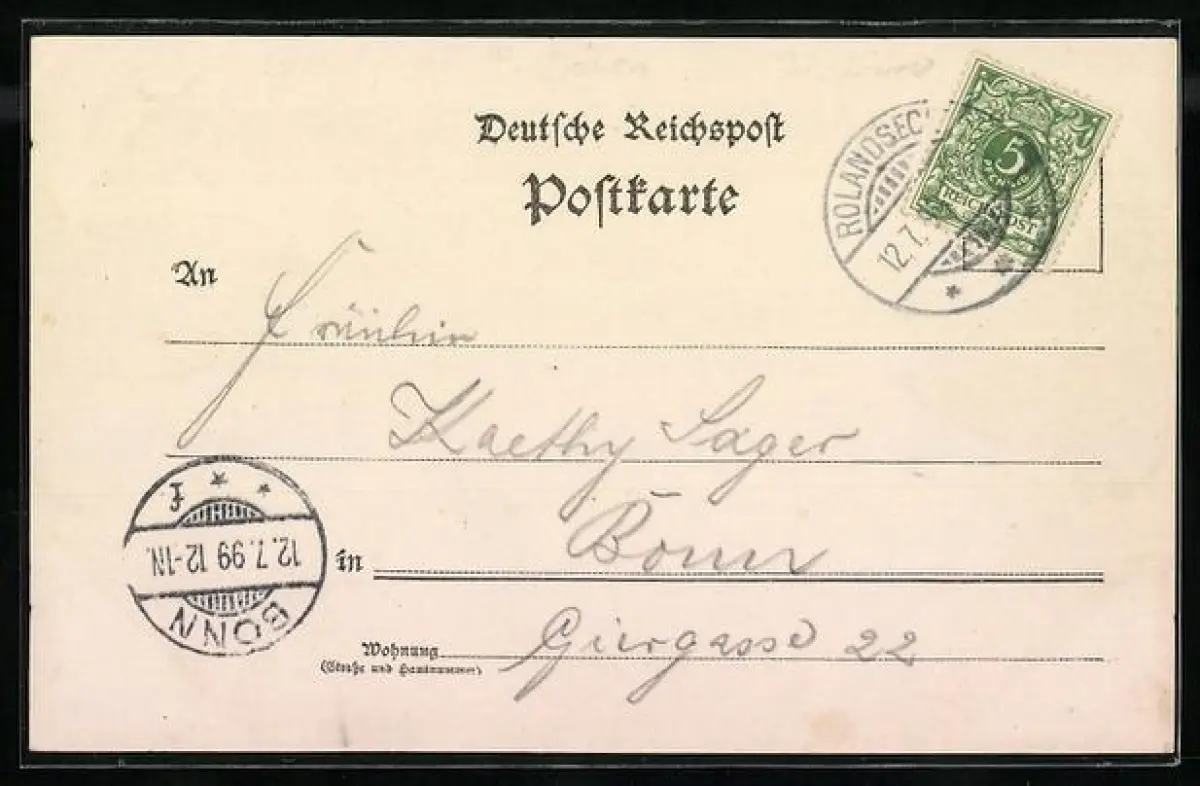 Deutsche Reichspost
Postkarte
ROLANDSEC
12.7.
5
REICHSPOST
An
Fräulein
Kaethy Sager
in Bonn
Wohnung Giergasse 22
(Straße und Hausnummer)
BONN
12.7.99 12-1N.